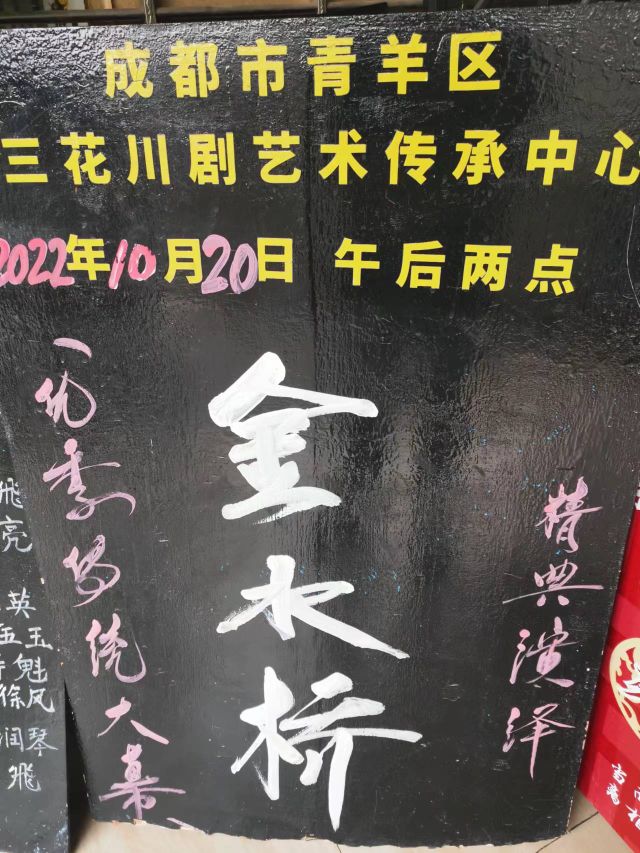 成都市青羊区
三花川剧艺术传承中心
2022年10月20日 午后两点
精典演泽
金水桥
一优秀传统大幕
飛
亮
英
伍玉
魁
徐凤
润琴
飛